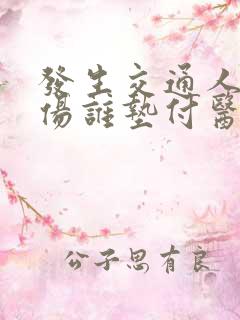 發生交通人
傷誰墊付醫
公子思有良